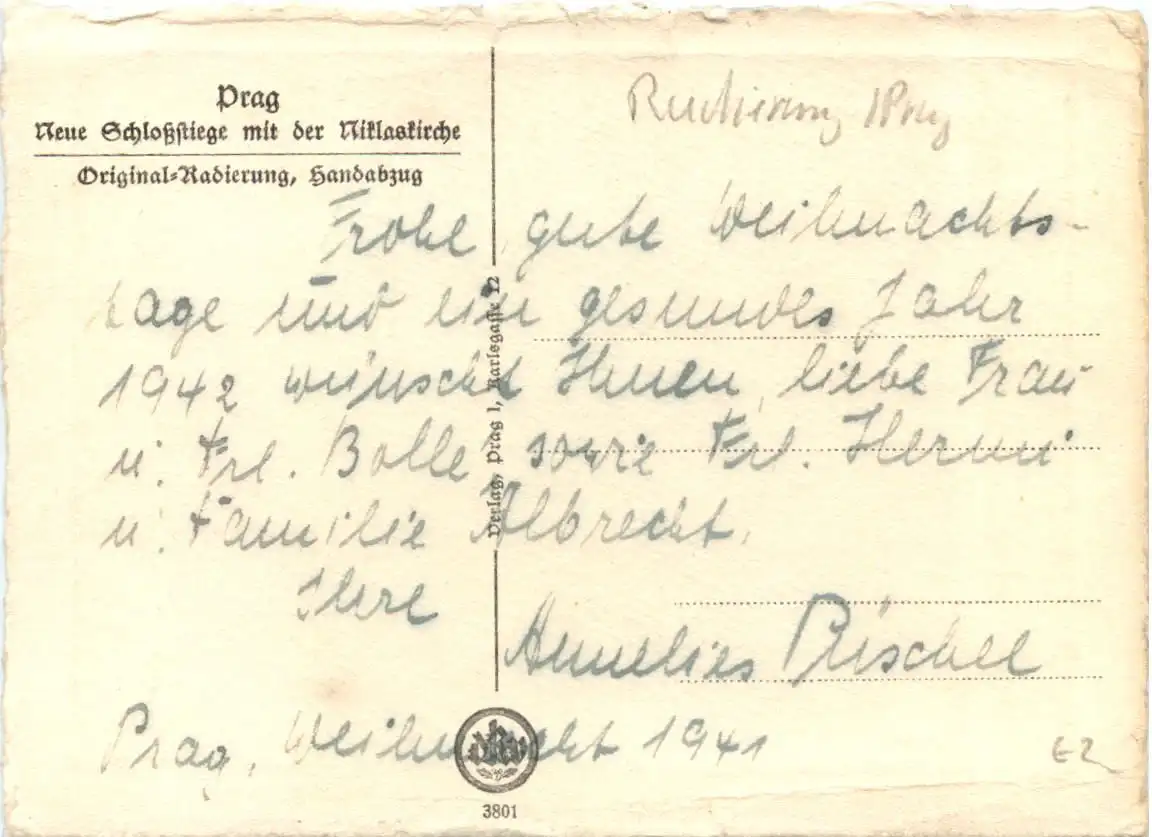 Prag
Neue Schloßstiege mit der Niklaskirche
Original-Radierung, Handabzug
Prag
Frohe, gute Weihnachts-
tage und ein gesundes Jahr
1942 wünscht Ihnen, liebe Frau
u. Frl. Bolle sowie Frl. Hermi
u. Familie Albrecht.
Ihre
Annelies
Prag, Weihnacht 1941
Verlag, Prag 1, Karlsgasse 12
3801